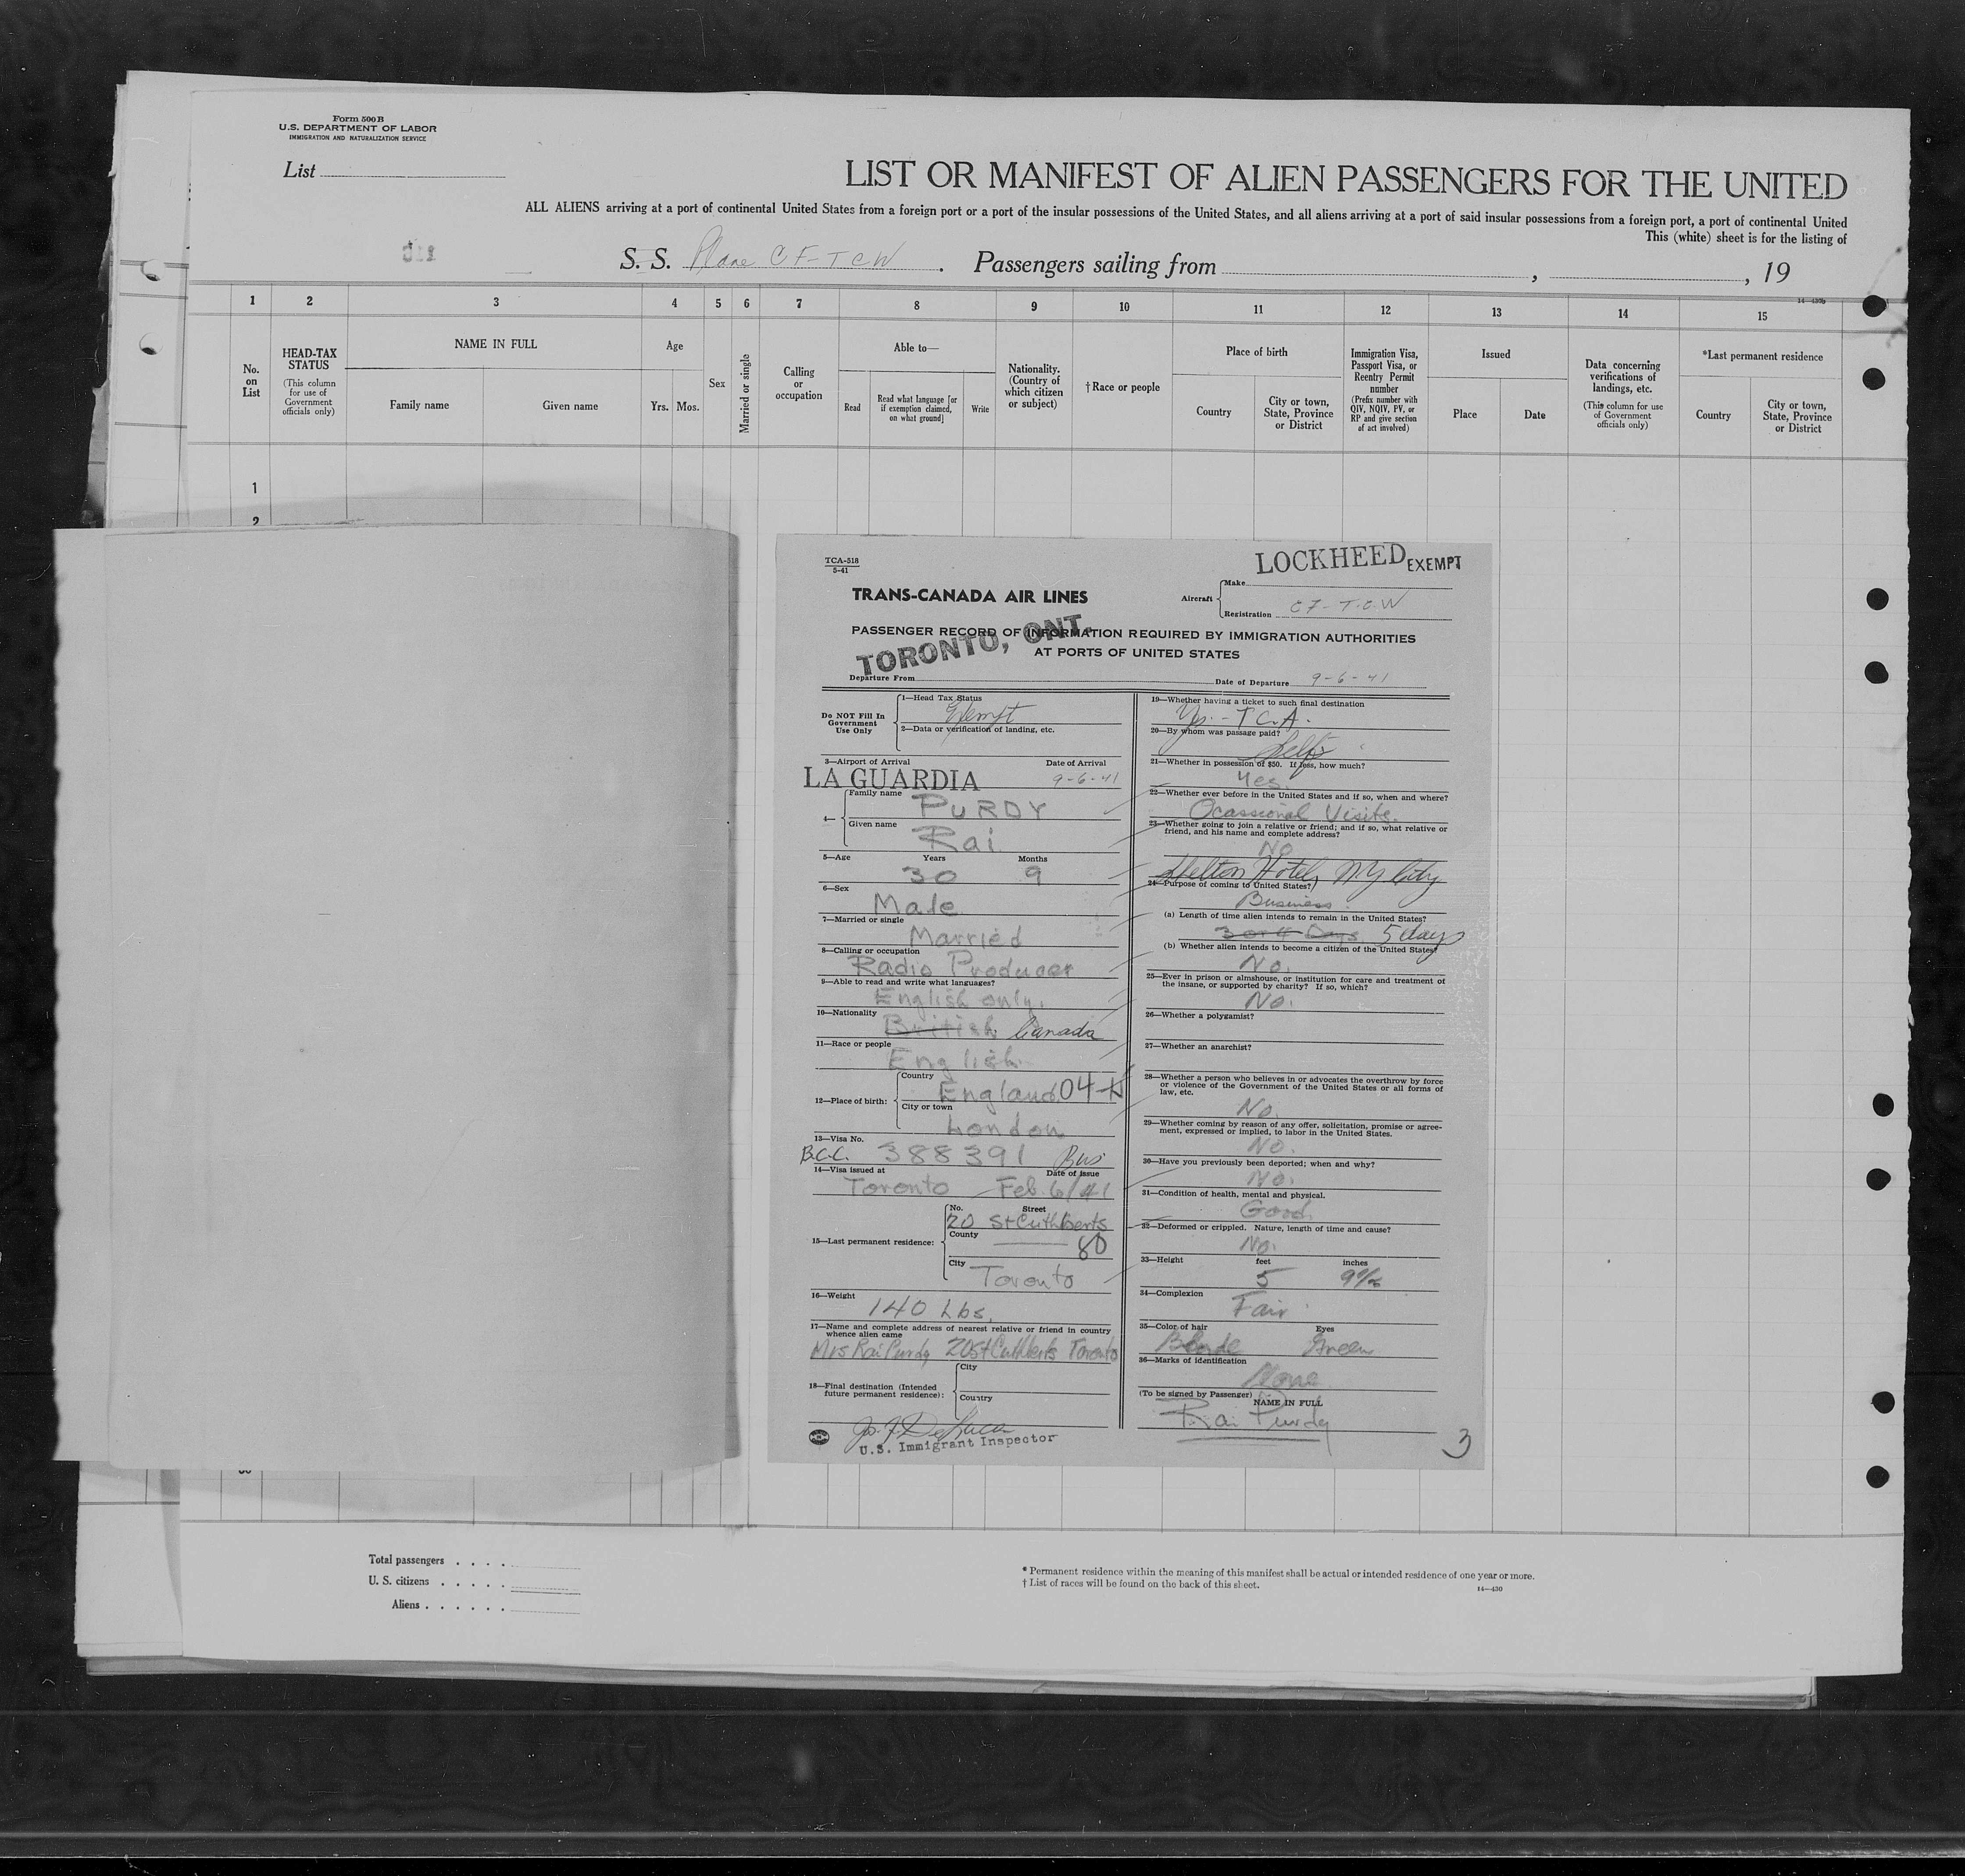 Form 500 B
U.S. DEPARTMENT OF LABOR
IMMIGRATION AND NATURALIZATION SERVICE
List
LIST OR MANIFEST OF ALIEN PASSENGERS FOR THE UNITED
ALL ALIENS arriving at a port of continental United States from a foreign port or a port of the insular possessions of the United States, and all aliens arriving at a port of said insular possessions from a foreign port, a port of continental United
This (white) sheet is for the listing of
S. S. Plane CF-TCW . Passengers sailing from , , 19
1 2 3 4 5 6 7 8 9 10 11 12 13 14 15
No. on List
HEAD-TAX STATUS (This column for use of Government officials only)
NAME IN FULL
Family name Given name
Age
Yrs. Mos.
Sex
Married or single
Calling or occupation
Able to—
Read
Read what language [or if exemption claimed, on what ground]
Write
Nationality. (Country of which citizen or subject)
†Race or people
Place of birth
Country
City or town, State, Province or District
Immigration Visa, Passport Visa, or Reentry Permit number (Prefix number with QIV, NQIV, PV, or RP and give section of act involved)
Issued
Place Date
Data concerning verifications of landings, etc. (This column for use of Government officials only)
*Last permanent residence
Country
City or town, State, Province or District
1
2
TCA-518
5-41
LOCKHEED EXEMPT
TRANS-CANADA AIR LINES
Aircraft
Make
Registration CF-T.C.W
PASSENGER RECORD OF INFORMATION REQUIRED BY IMMIGRATION AUTHORITIES
AT PORTS OF UNITED STATES
TORONTO, ONT.
Departure From Date of Departure 9-6-41
Do NOT Fill In Government Use Only
1—Head Tax Status
Exempt
2—Data or verification of landing, etc.
3—Airport of Arrival Date of Arrival
LA GUARDIA 9-6-41
4—
Family name
PURDY
Given name
Rai
5—Age Years Months
30 9
6—Sex
Male
7—Married or single
Married
8—Calling or occupation
Radio Producer
9—Able to read and write what languages?
English only.
10—Nationality
British Canada
11—Race or people
English
12—Place of birth:
Country
England 04-
City or town
London
13—Visa No.
B.C.C. 388391 Bus
14—Visa issued at Date of Issue
Toronto Feb. 6/41
15—Last permanent residence:
No. Street
20 St Cuthberts
County
80
City
Toronto
16—Weight
140 Lbs.
17—Name and complete address of nearest relative or friend in country
whence alien came
Mrs Rai Purdy 20 St Cuthberts Toronto
18—Final destination (Intended
future permanent residence):
City
Country
U.S. Immigrant Inspector
19—Whether having a ticket to such final destination
Yes. - T.C.A.
20—By whom was passage paid?
Self
21—Whether in possession of $50. If less, how much?
Yes.
22—Whether ever before in the United States and if so, when and where?
Ocassional Visits.
23—Whether going to join a relative or friend; and if so, what relative or
friend, and his name and complete address?
No
Shelton Hotel, N.Y. City
24—Purpose of coming to United States?
Business.
(a) Length of time alien intends to remain in the United States?
3 or 4 Days 5 days
(b) Whether alien intends to become a citizen of the United States?
No.
25—Ever in prison or almshouse, or institution for care and treatment of
the insane, or supported by charity? If so, which?
No.
26—Whether a polygamist?
27—Whether an anarchist?
28—Whether a person who believes in or advocates the overthrow by force
or violence of the Government of the United States or all forms of
law, etc.
No.
29—Whether coming by reason of any offer, solicitation, promise or agree-
ment, expressed or implied, to labor in the United States.
No.
30—Have you previously been deported; when and why?
No.
31—Condition of health, mental and physical.
Good
32—Deformed or crippled. Nature, length of time and cause?
No.
33—Height feet inches
5 9½
34—Complexion
Fair
35—Color of hair Eyes
Blonde Green
36—Marks of identification
None
(To be signed by Passenger) NAME IN FULL
Rai Purdy
3
Total passengers . . . .
U. S. citizens . . . . .
Aliens . . . . . .
* Permanent residence within the meaning of this manifest shall be actual or intended residence of one year or more.
† List of races will be found on the back of this sheet.
14—430